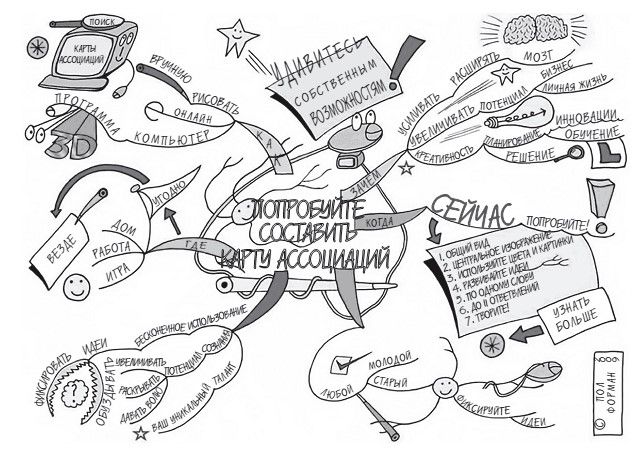 ПОИСК
КАРТЫ
АССОЦИАЦИЙ
ПРОГРАММА
3D
ВРУЧНУЮ
РИСОВАТЬ
ОНЛАЙН
КОМПЬЮТЕР
КАК
УДИВИТЕСЬ
СОБСТВЕННЫМ
ВОЗМОЖНОСТЯМ
ЗАЧЕМ
УСИЛИВАТЬ
РАСШИРЯТЬ
МОЗГ
УВЕЛИЧИВАТЬ
ПОТЕНЦИАЛ
БИЗНЕС
ЛИЧНАЯ ЖИЗНЬ
ИННОВАЦИИ
ОБУЧЕНИЕ
ПЛАНИРОВАНИЕ
КРЕАТИВНОСТЬ
РЕШЕНИЕ
КОГДА
СЕЙЧАС
ПОПРОБУЙТЕ!
1. ОБЩИЙ ВИД
2. ЦЕНТРАЛЬНОЕ ИЗОБРАЖЕНИЕ
3. ИСПОЛЬЗУЙТЕ ЦВЕТА И КАРТИНКИ
4. РАЗВИВАЙТЕ ИДЕИ
5. ПО ОДНОМУ СЛОВУ
6. ДО 11 ОТВЕТВЛЕНИЙ
7. ТВОРИТЕ!
УЗНАТЬ
БОЛЬШЕ
ПОПРОБУЙТЕ
СОСТАВИТЬ
КАРТУ АССОЦИАЦИЙ
ГДЕ
УГОДНО
ВЕЗДЕ
ДОМ
РАБОТА
ИГРА
БЕСКОНЕЧНОЕ ИСПОЛЬЗОВАНИЕ
ФИКСИРОВАТЬ
ИДЕИ
ОБУЗДЫВАТЬ
УВЕЛИЧИВАТЬ
ПОТЕНЦИАЛ
СОЗНАНИЯ
РАСКРЫВАТЬ
ДАВАТЬ ВОЛЮ
ВАШ УНИКАЛЬНЫЙ ТАЛАНТ
МОЛОДОЙ
СТАРЫЙ
ЛЮБОЙ
ФИКСИРУЙТЕ
ИДЕИ
© ПОЛ
ФОРМАН